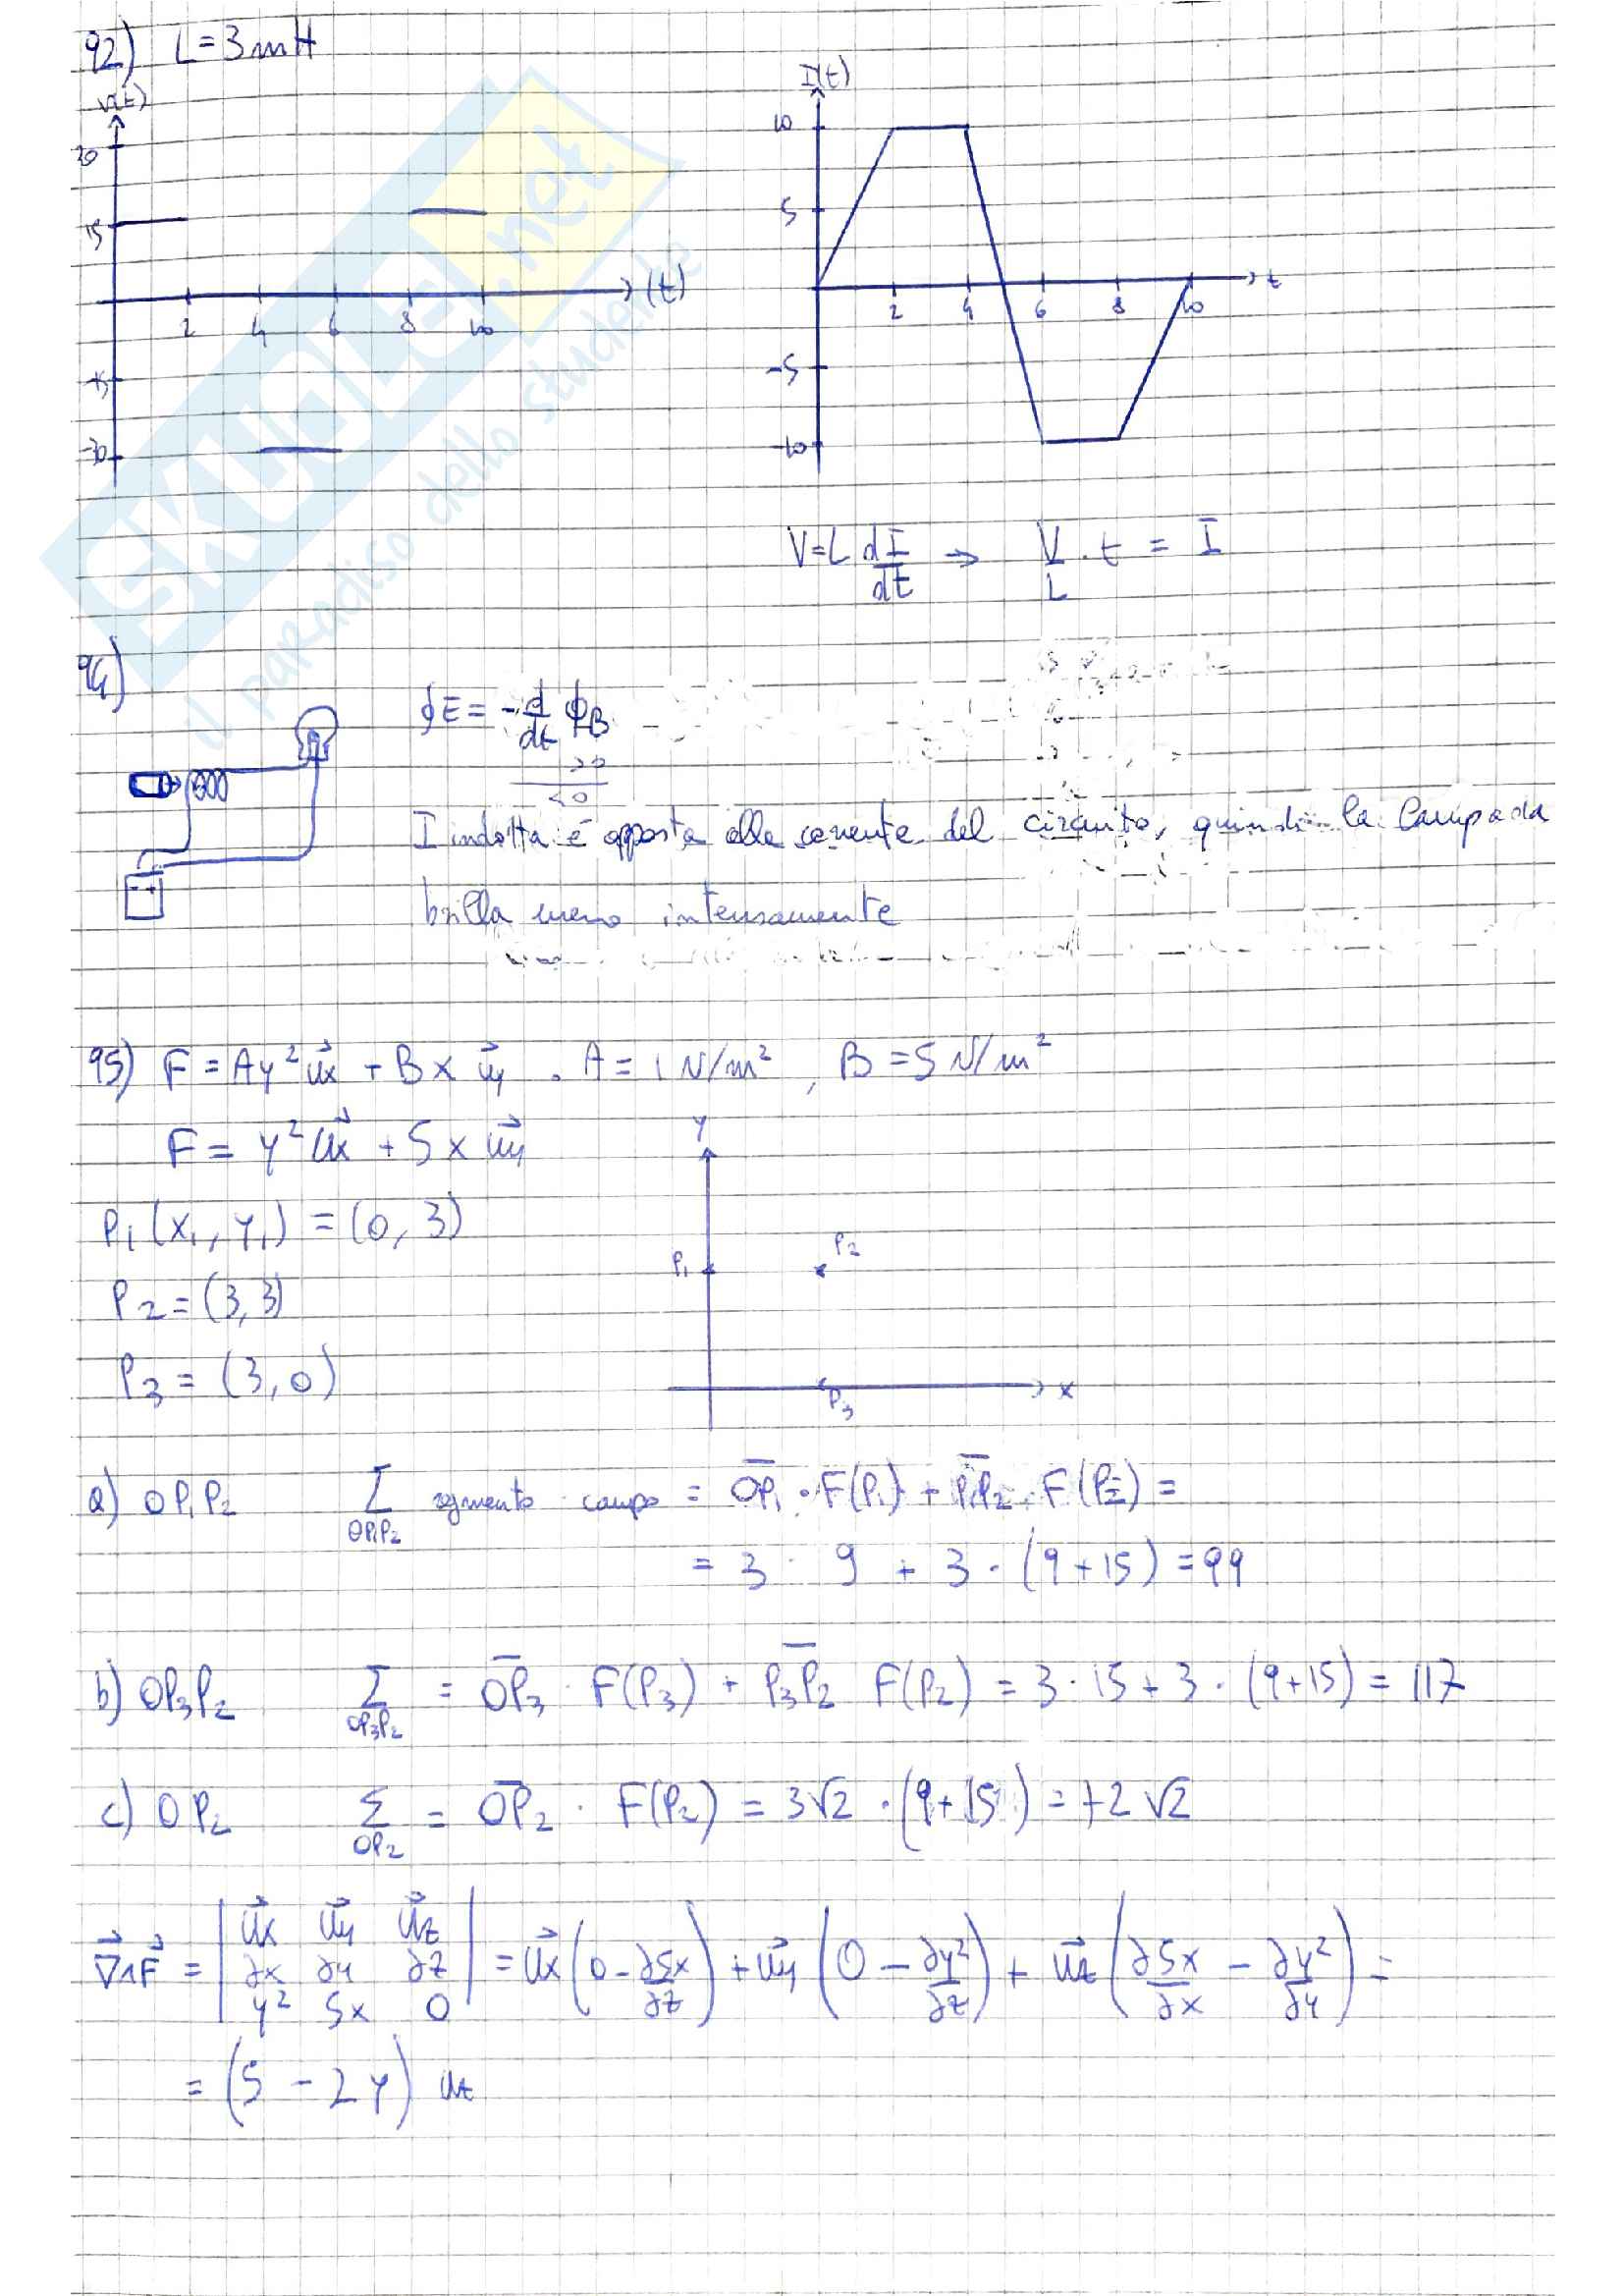 92) L=3mH
V(t)
30
15
2 4 6 8 10 (t)
-15
-30
I(t)
10
5
2 4 6 8 10 t
-5
-10
V=L dI/dt → V/L · t = I
94)
∮E = - d/dt ϕB
>0
<0
I indotta è opposta alla corrente del circuito, quindi la lampada
brilla meno intensamente
95) F = Ay² u⃗x + Bx u⃗y . A = 1 N/m² , B = 5 N/m²
F = y² u⃗x + 5x u⃗y
P1 (x1, y1) = (0, 3)
P2 = (3,3)
P3 = (3,0)
y
P1
P2
P3
x
a) OP1P2 Σ OP1P2 segmento · campo = OP1 · F(P1) + P1P2 · F(P2) =
= 3 · 9 + 3 · (9+15) = 99
b) OP3P2 Σ OP3P2 = OP3 · F(P3) + P3P2 F(P2) = 3 · 15 + 3 · (9+15) = 117
c) OP2 Σ OP2 = OP2 · F(P2) = 3√2 · (9+15) = 72√2
∇⃗∧F⃗ = | u⃗x u⃗y u⃗z | = u⃗x (0 - ∂5x/∂z) + u⃗y (0 - ∂y²/∂z) + u⃗z (∂5x/∂x - ∂y²/∂y) =
∂x ∂y ∂z
y² 5x 0
= (5 - 2y) uz
SKUOLA.net
il paradiso dello studente